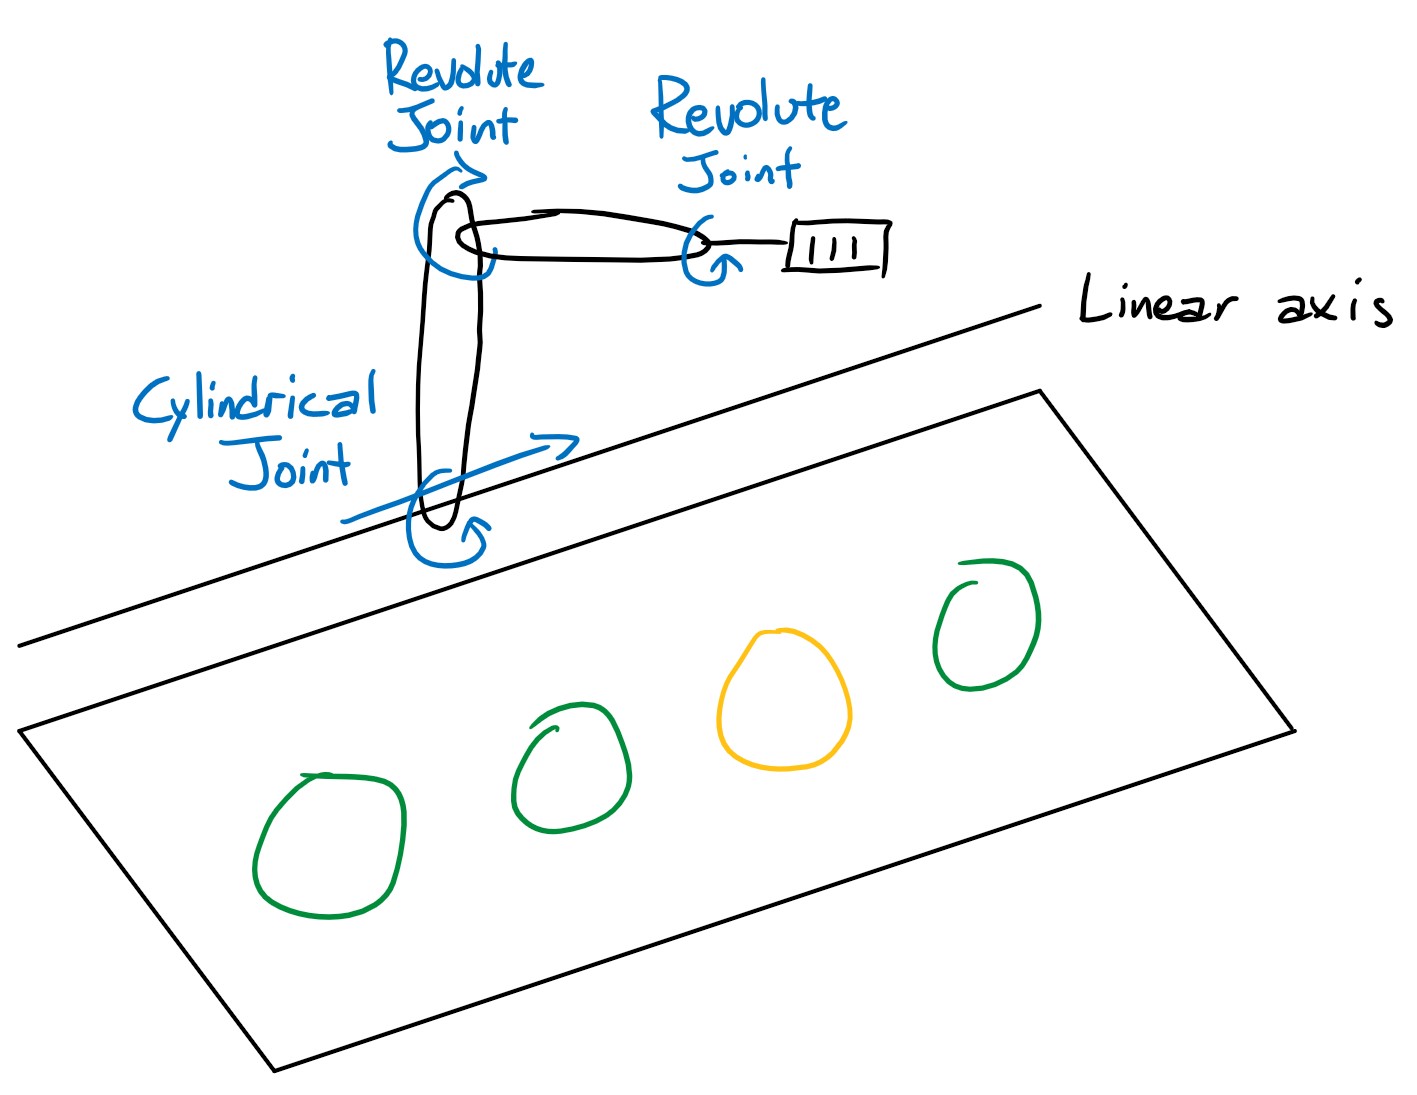 Revolute
Joint
Revolute
Joint
Linear axis
Cylindrical
Joint